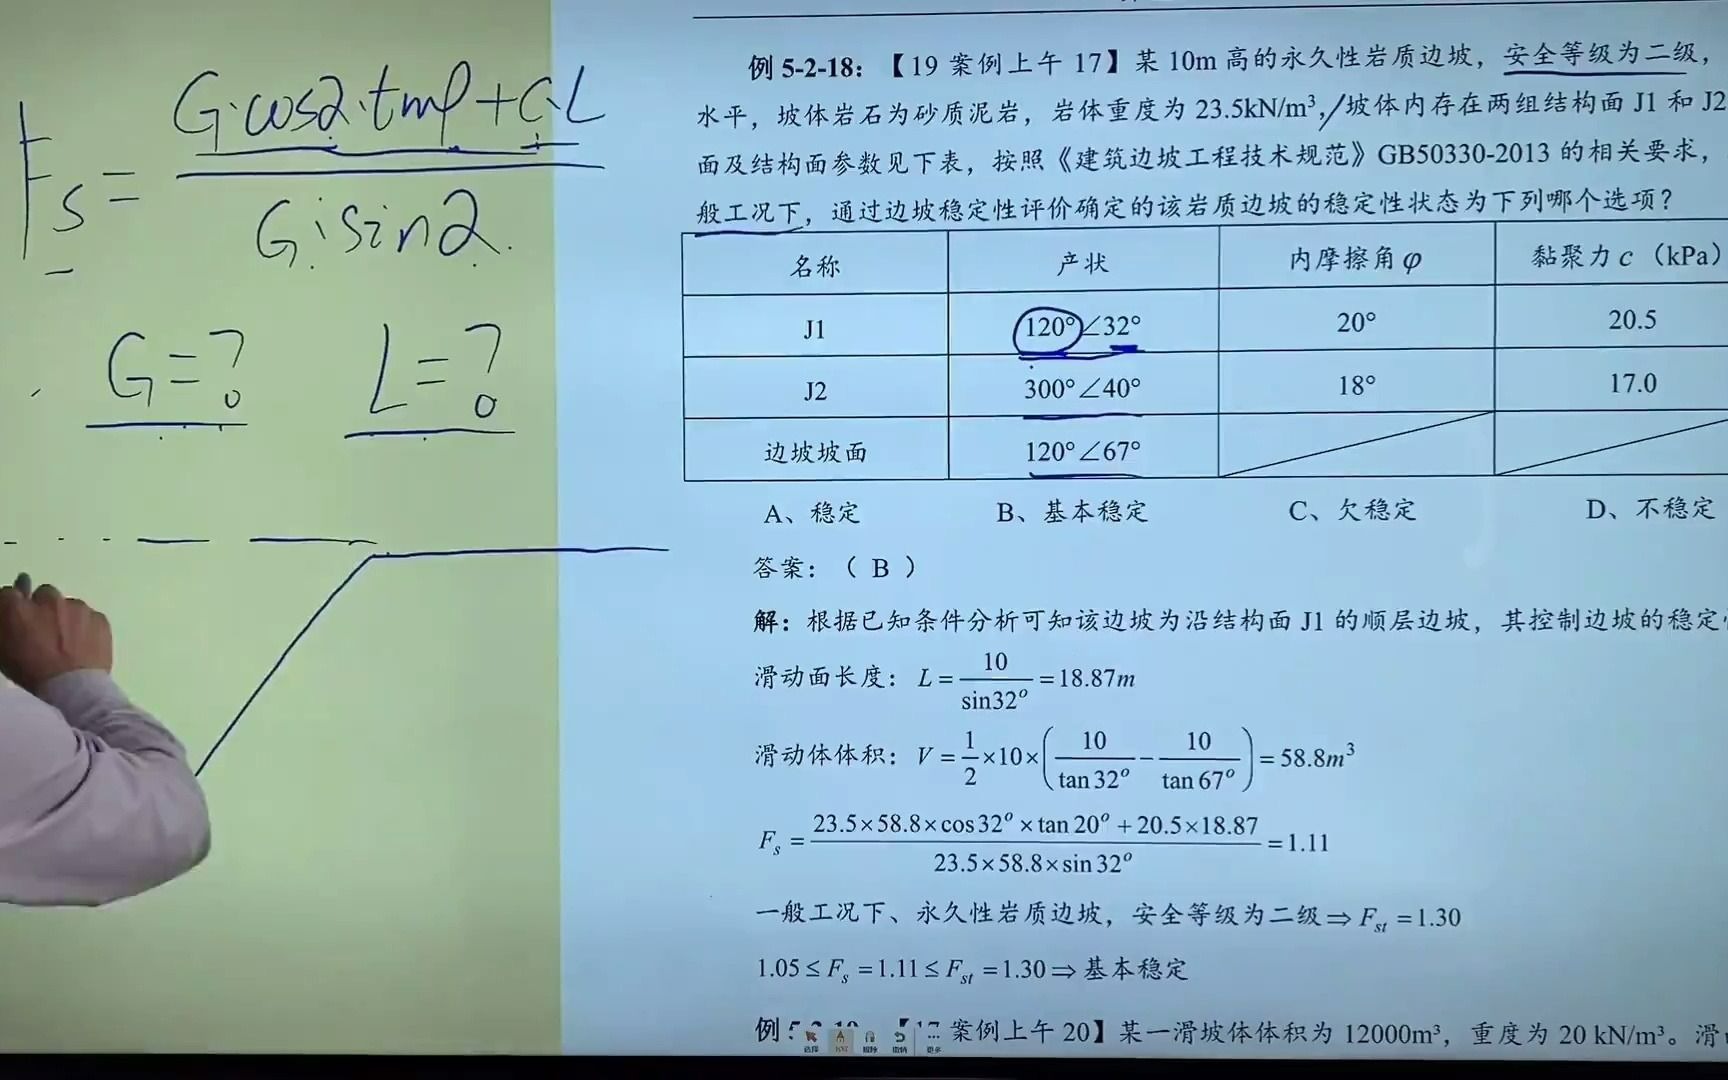 Fs = (G·cosα·tanφ + C·L) / (G·sinα)
G=? L=?
例 5-2-18：【19 案例上午 17】某 10m 高的永久性岩质边坡，安全等级为二级，
水平，坡体岩石为砂质泥岩，岩体重度为 23.5kN/m³，坡体内存在两组结构面 J1 和 J2
面及结构面参数见下表，按照《建筑边坡工程技术规范》GB50330-2013 的相关要求，
般工况下，通过边坡稳定性评价确定的该岩质边坡的稳定性状态为下列哪个选项？
名称 产状 内摩擦角 φ 黏聚力 c （kPa）
J1 120°∠32° 20° 20.5
J2 300°∠40° 18° 17.0
边坡坡面 120°∠67°
A、稳定 B、基本稳定 C、欠稳定 D、不稳定
答案：（ B ）
解：根据已知条件分析可知该边坡为沿结构面 J1 的顺层边坡，其控制边坡的稳定
滑动面长度：L = 10 / sin32° = 18.87m
滑动体体积：V = 1/2 ×10×(10 / tan32° − 10 / tan67°) = 58.8m³
Fs = (23.5×58.8×cos32°×tan20°+20.5×18.87) / (23.5×58.8×sin32°) = 1.11
一般工况下、永久性岩质边坡，安全等级为二级⇒Fst =1.30
1.05≤Fs =1.11≤Fst =1.30⇒基本稳定
案例上午 20】某一滑坡体体积为 12000m³，重度为 20 kN/m³。滑
选择 更多